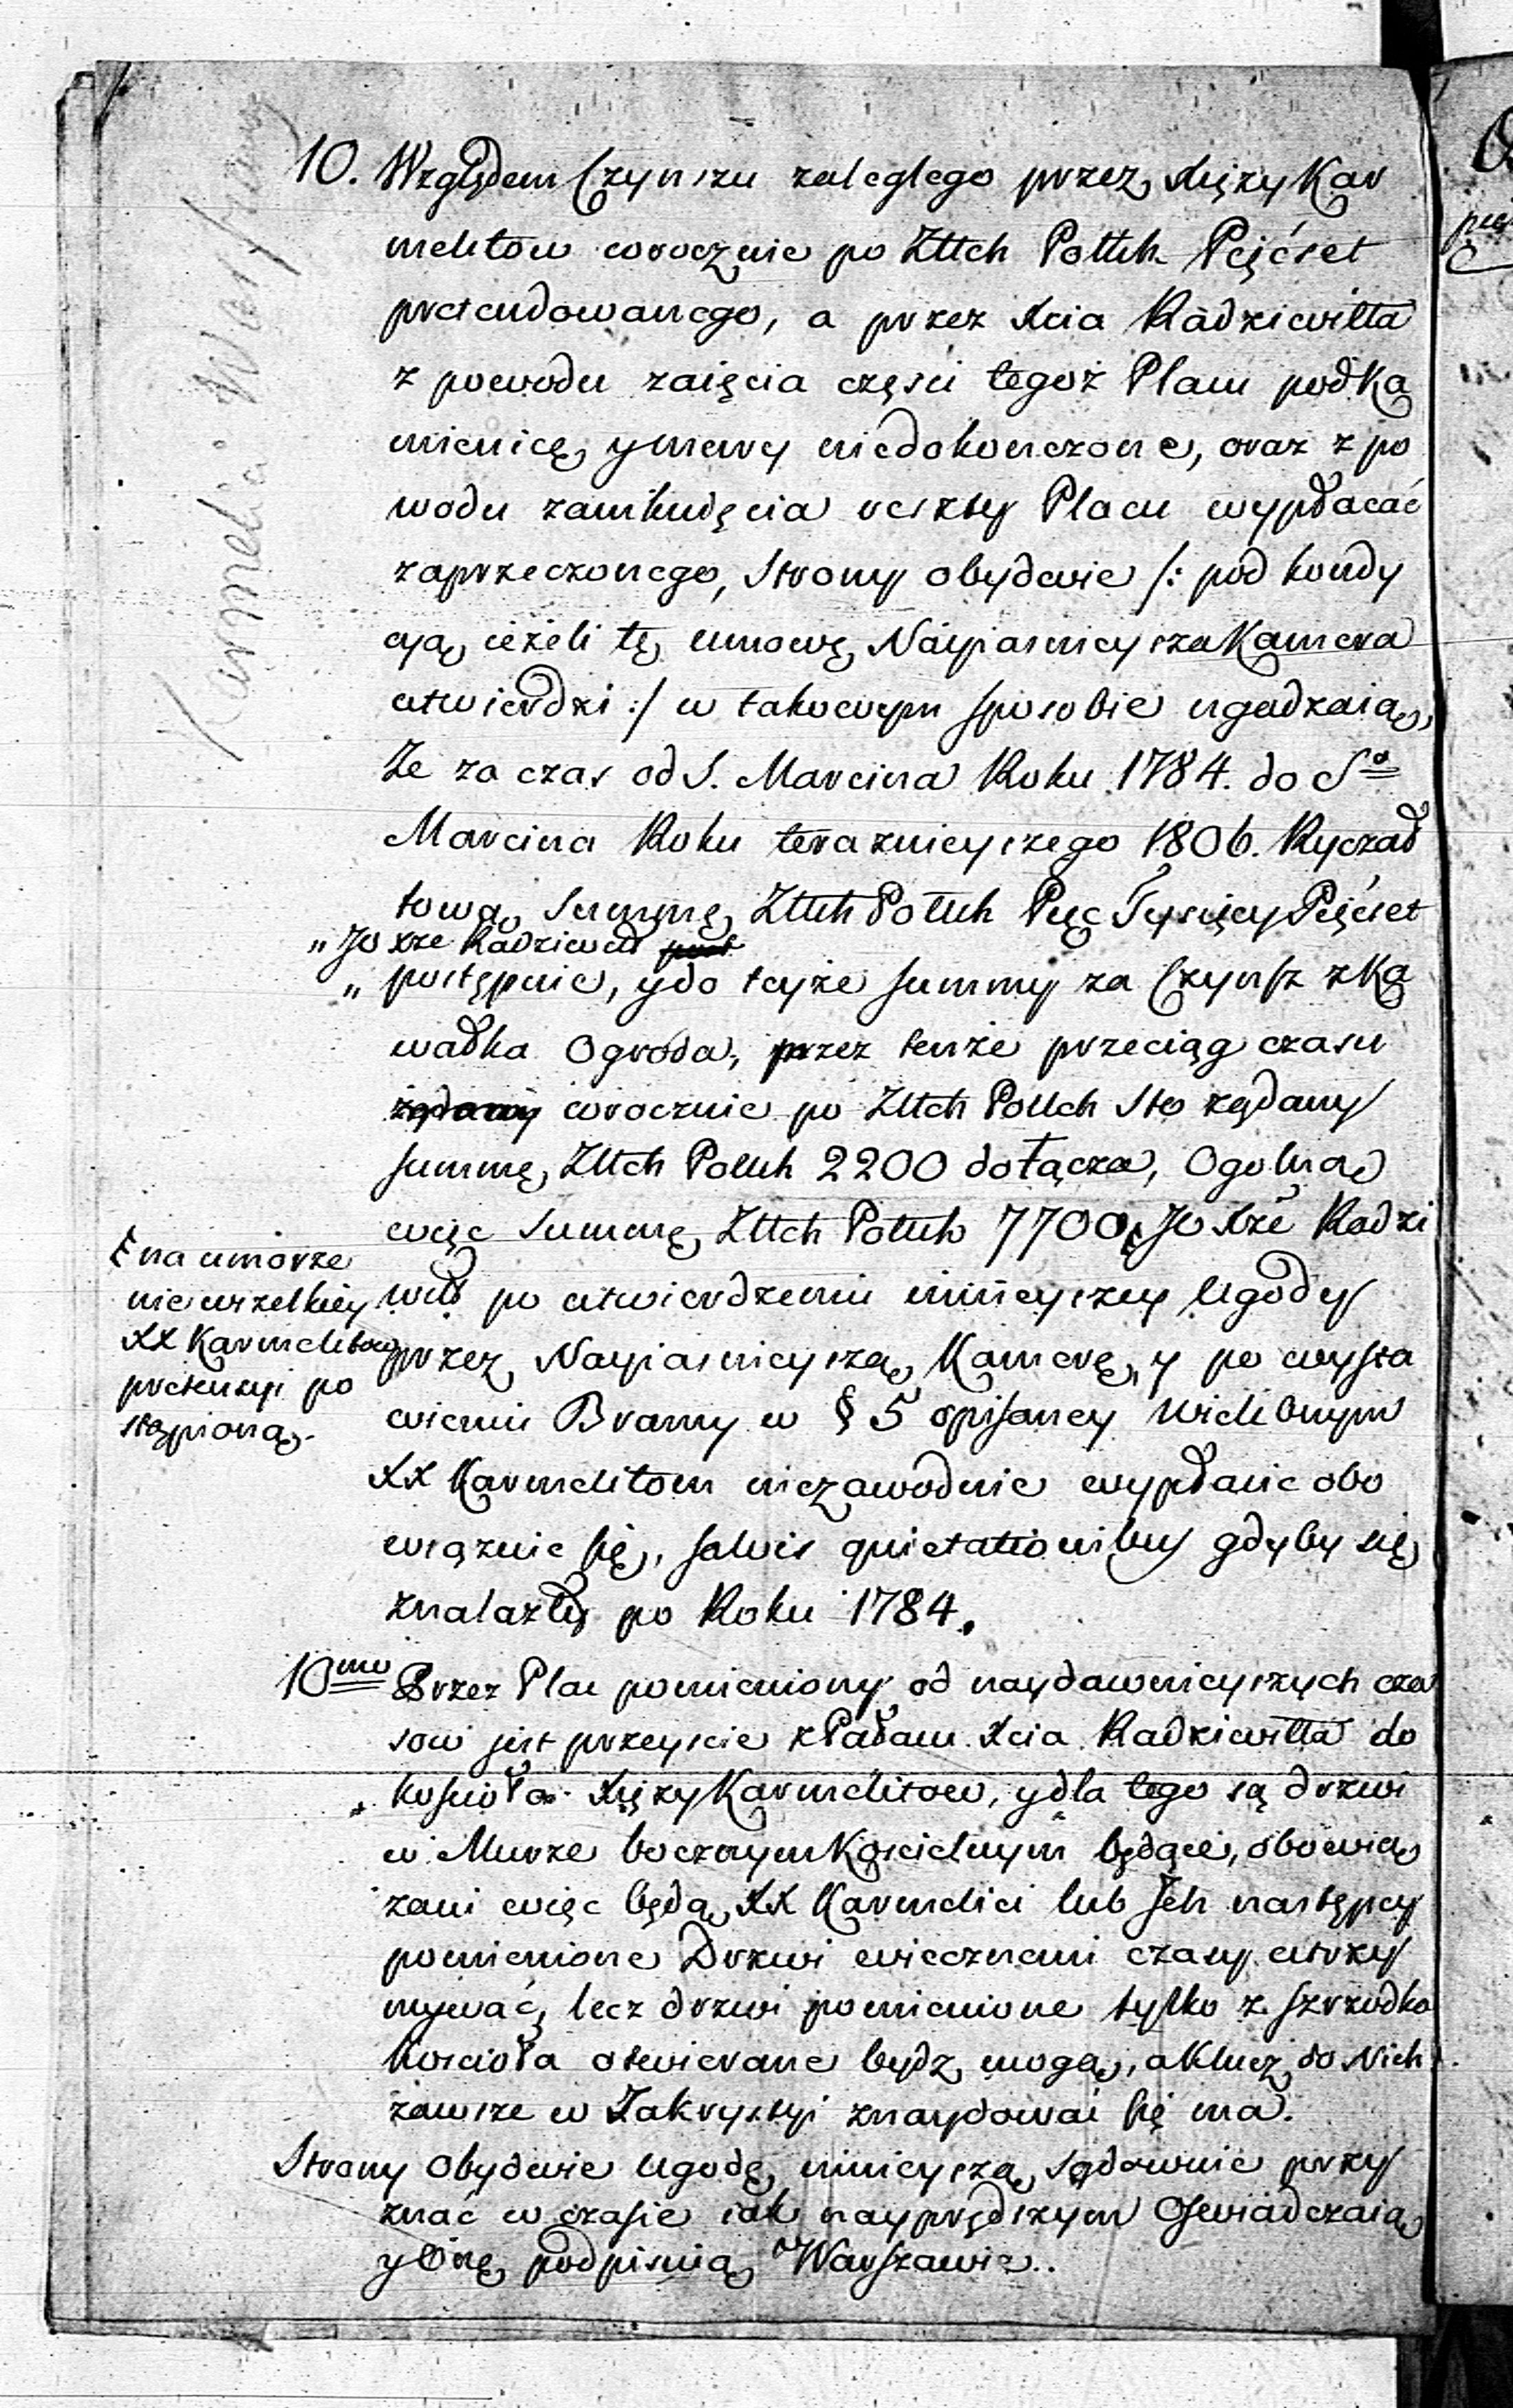 Karmelici Warszawa
10. Względem Czynszu zaległego przez Xięży Kar
melitow corocznie po Zttch Polltch Pięćset
pretendowanego, a przez Xcia Radziwiłła
z powodu zaięcia częsci tegoż Placu pod Ka
mienicę, y mury niedokonczone, oraz z po
wodu zamknięcia reszty Placu wypłacać
zaprzeczonego, Strony obydwie /: pod kondy
cyą, ieżeli tę umowę Nayiasnieysza Kamera
utwierdzi :/ w takowym sposobie ugadzaią,
Ze za czas od S. Marcina Roku 1784. do So
Marcina Roku teraznieyszego 1806. Ryczał
tową Summę Zttch Polltch Pięć Tysięcy Pięćset
„ JO Xże Radziwiłł
„ postępuie, y do teyże summy za Czynsz z Ka
wałka Ogroda, przez tenże przeciąg czasu
żądany corocznie po Zttch Polltch Sto żądany
summę Zttch Polltch 2200 dołącza, Ogolną
więc Summę Zttch Polltch 7700 JO Xże Radzi
na umorze
nie wszelkiey
XX Karmelitow
pretensyi po
stąpioną.
wiłł po utwierdzeniu ninieyszey Ugody
przez Nayiasnieyszą Kamerę, y po wysta
wieniu Bramy w § 5 opisaney Wielebnym
XX Karmelitom niezawodnie wypłacić obo
wiązuie się, salvis quietationibus gdyby się
znalazły po Roku 1784.
10mo Przez Plac pomieniony od naydawnieyszych cza
sow jest przeyscie z Pałacu Xcia Radziwiłła do
Kościoła Xięży Karmelitow, y dla tego są drzwi
w Murze bocznym Kościelnym będące, obowią
zani więc będą XX Karmelici lub Jch następcy
pomienione Drzwi wiecznemi czasy utrzy
mywać, lecz drzwi pomienione tylko z szrzodka
Kościoła otwierane bydz mogą, a Klucz do Nich
zawsze w Zakrystyi znaydować się ma.
Strony Obydwie Ugodę ninieyszą sądownie przy
znać w czasie iak nayprędszym Oswiadczaią
y Onę podpisuią w Warszawie..